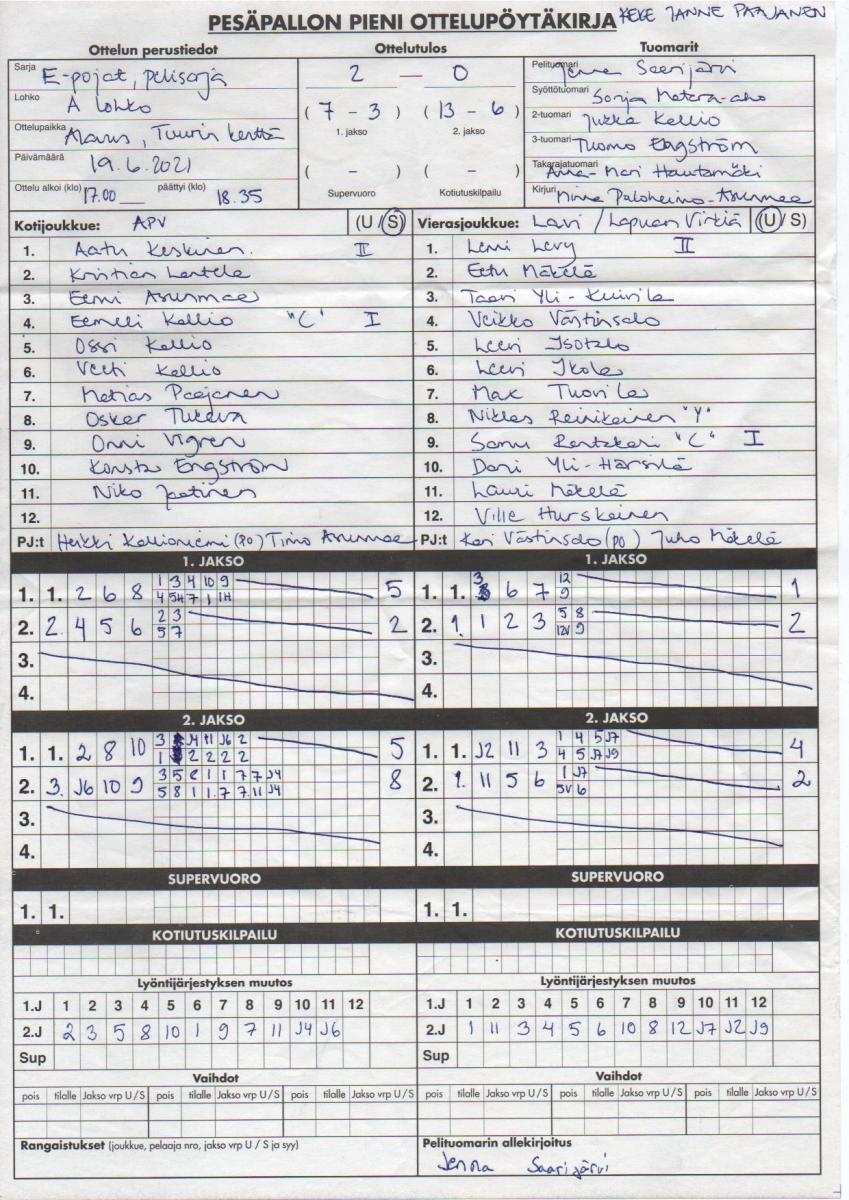 PESÄPALLON PIENI OTTELUPÖYTÄKIRJA KEKE JANNE PAAJANEN
Ottelun perustiedot Ottelutulos Tuomarit
Sarja E-pojat, pelisarja
Lohko A lohko
Ottelupaikka Alavus, Tuurin kenttä
Päivämäärä 19.6.2021
Ottelu alkoi (klo) 17.00 päättyi (klo) 18.35
2 — 0
( 7 - 3 ) ( 13 - 6 )
1. jakso 2. jakso
( - ) ( - )
Supervuoro Kotiutuskilpailu
Pelituomari Jenna Saarijärvi
Syöttötuomari Sonja
2-tuomari Jukka Kallio
3-tuomari Tuomo Engström
Takarajatuomari Anna-Mari Hautamäki
Kirjuri Minna Paloheimo-Asunmaa
Kotijoukkue: APV (U / S) Vierasjoukkue: Lavi / Lapuan Virkiä (U / S)
1. Aatu Keskinen II 1. Lenni Levy II
2. Kristian Lantela 2. Eetu Mäkelä
3. Eemi Asunmaa 3. Taavi Yli-Kuivila
4. Eemeli Kallio "C" I 4. Veikko Västinsalo
5. Ossi Kallio 5. Leevi Isotalo
6. Veeti Kallio 6. Leevi Ikola
7. Matias Paajanen 7. Max Tuovila
8. Oskar Tukeva 8. Niklas Reinikainen "Y"
9. Onni Vigren 9. Samu Rantakari "C" I
10. Konsta Engström 10. Dani Yli-Harsilä
11. Niko Jaatinen 11. Lauri Mäkelä
12. 12. Ville Hurskainen
PJ:t Heikki Kallioniemi (PO) Timo Asunmaa PJ:t Kari Västinsalo (PO) Juho Mäkelä
1. JAKSO 1. JAKSO
1 3 4 10 9 12
1. 1. 2 6 8 5 1. 1. 3 6 7 1
4 5H 7 1 1H 9
2 3 5 8
2. 2. 4 5 6 2 2. 1. 1 2 3 2
5 7 12V 9
3. 3.
4. 4.
2. JAKSO 2. JAKSO
3 J4 11 J6 2 1 4 5 J7
1. 1. 2 8 10 5 1. 1. J2 11 3 4
1 2 2 2 2 4 5 J7 J9
3 5 8 1 1 7 7 J4 1 J7
2. 3. J6 10 9 8 2. 1. 11 5 6 2
5 8 1 1 7 7 11 J4 5V 6
3. 3.
4. 4.
SUPERVUORO SUPERVUORO
1. 1. 1. 1.
KOTIUTUSKILPAILU KOTIUTUSKILPAILU
Lyöntijärjestyksen muutos Lyöntijärjestyksen muutos
1.J 1 2 3 4 5 6 7 8 9 10 11 12 1.J 1 2 3 4 5 6 7 8 9 10 11 12
2.J 2 3 5 8 10 1 9 7 11 J4 J6 2.J 1 11 3 4 5 6 10 8 12 J7 J2 J9
Sup Sup
Vaihdot Vaihdot
pois tilalle Jakso vrp U / S pois tilalle Jakso vrp U / S pois tilalle Jakso vrp U / S pois tilalle Jakso vrp U / S pois tilalle Jakso vrp U / S pois tilalle Jakso vrp U / S
Rangaistukset (joukkue, pelaaja nro, jakso vrp U / S ja syy) Pelituomarin allekirjoitus
Jenna Saarijärvi